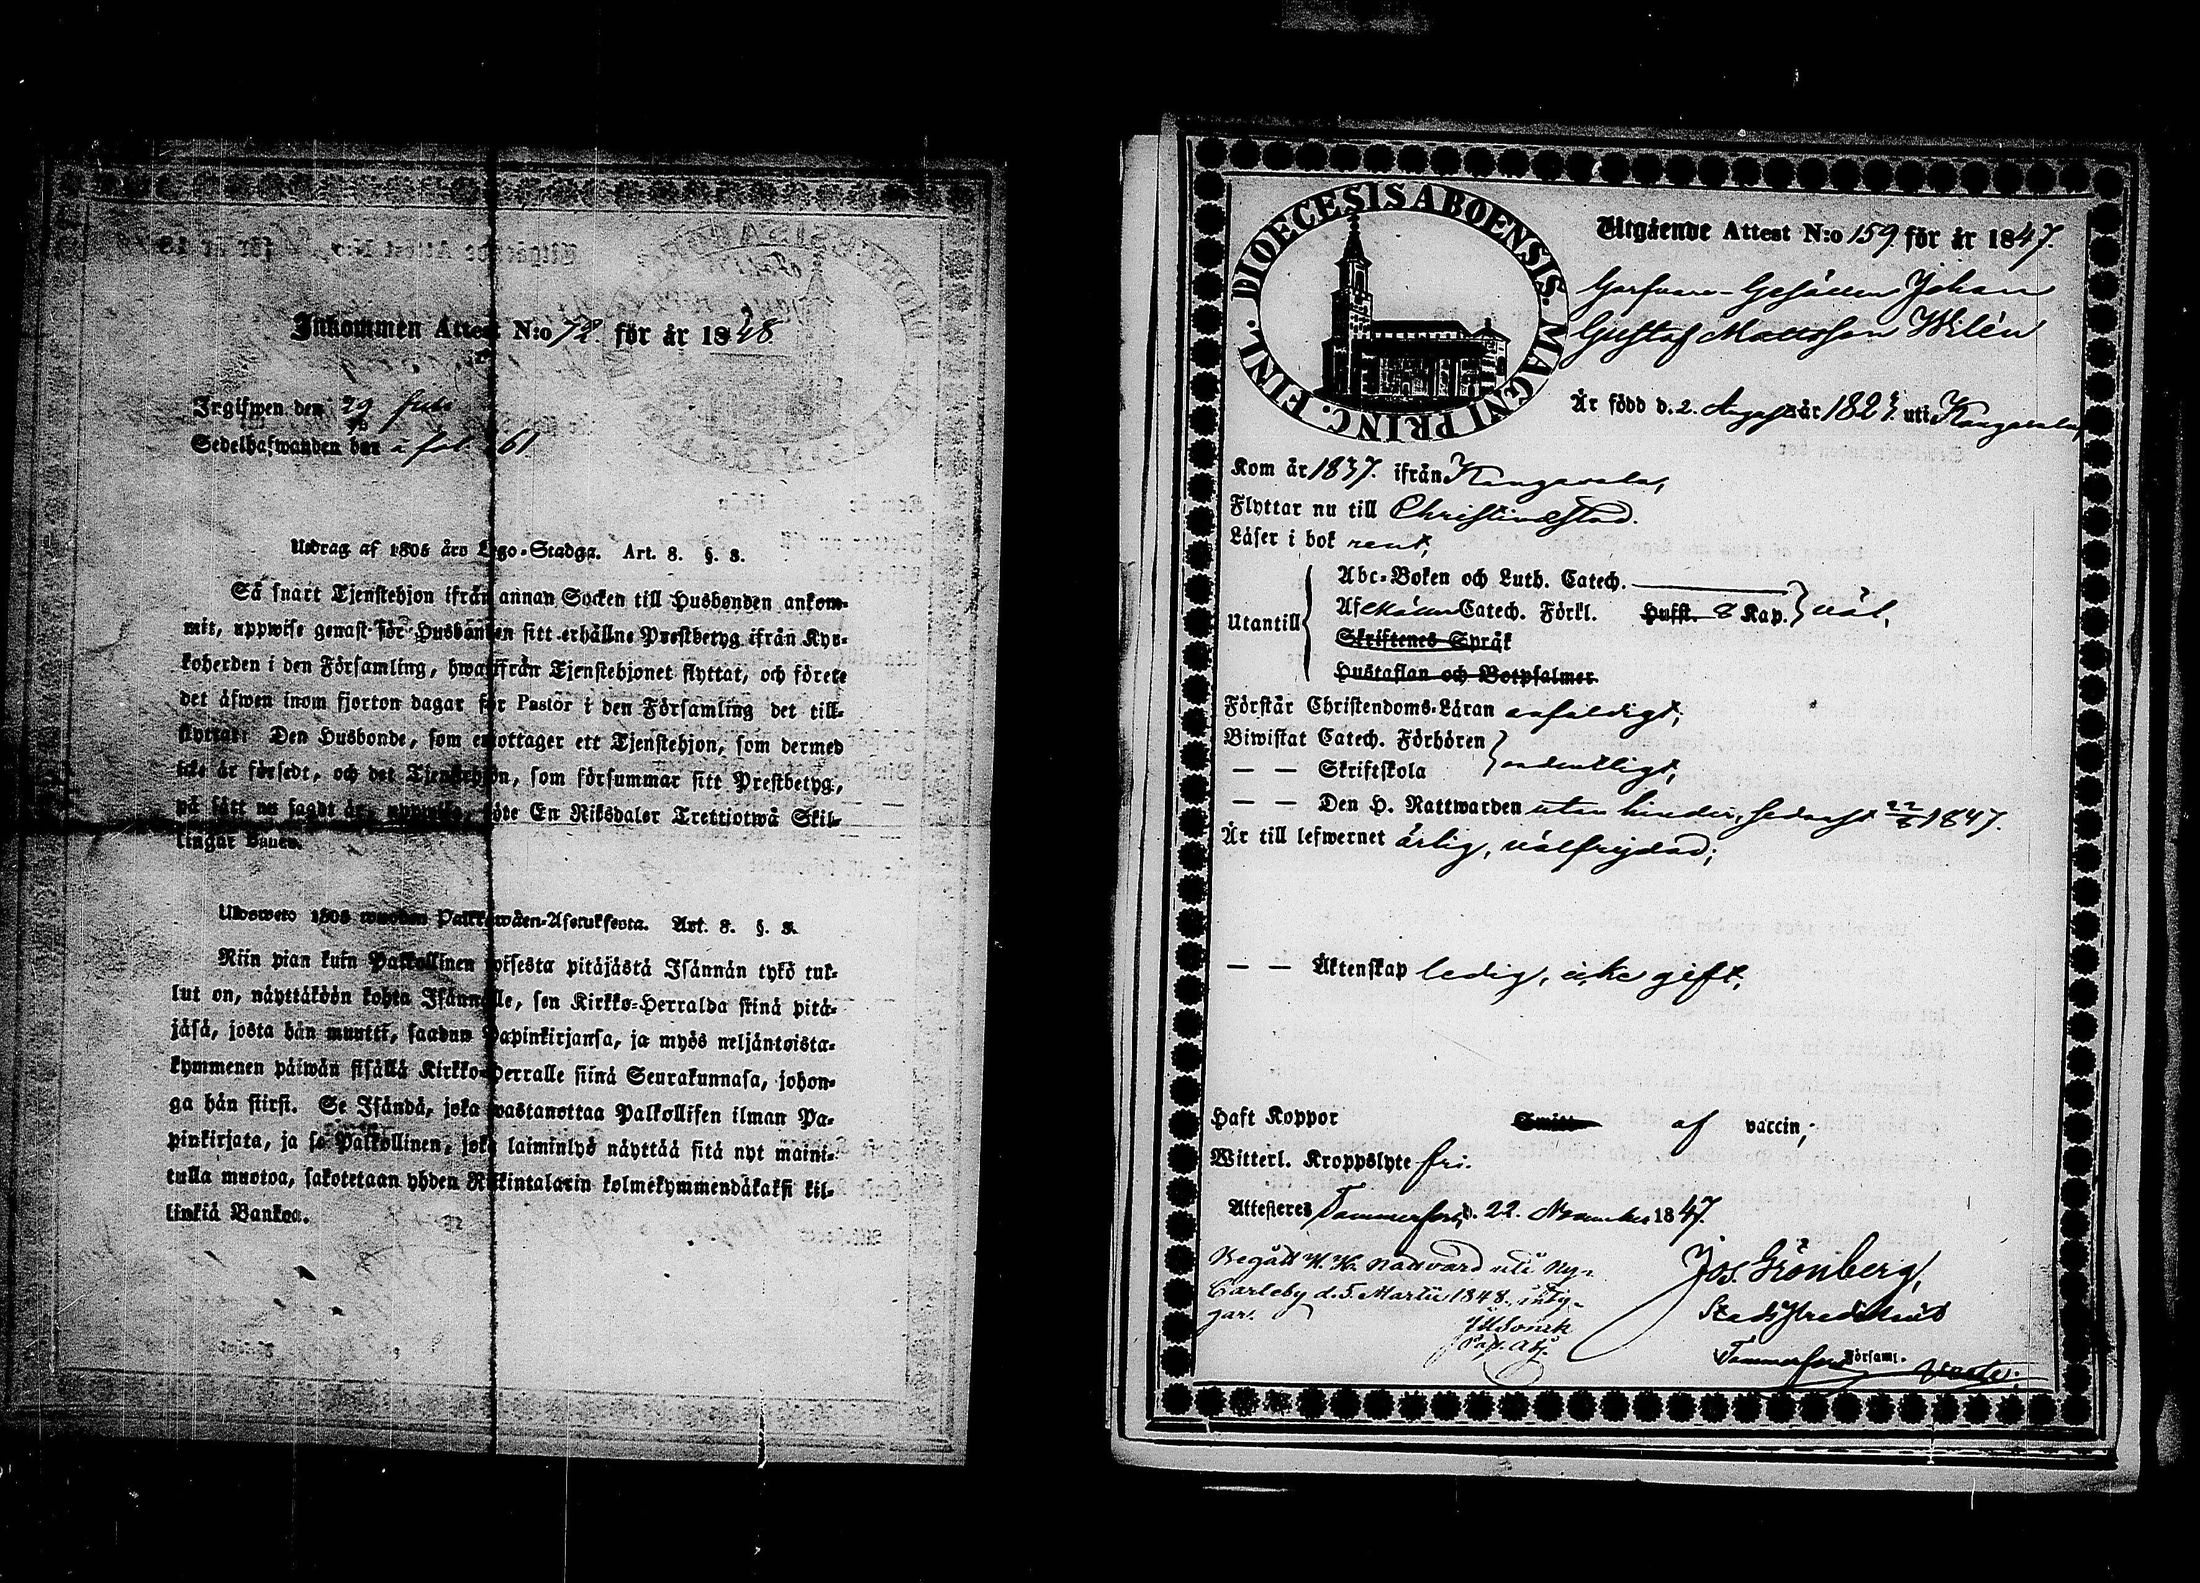 Inkommen Attest N:o 72 för år 1848
Irgifwen den 29
Sedelhafwanden den 61
Utdrag af 1805 års Lego-Stadga. Art. 8. §. 3.
Så snart Tjenstehjon ifrån annan Socken till Husbonden ankom-
mit, uppwise genast för Husbonden sitt erhållne Prestbetyg ifrån Kyr-
koherden i den Församling, hwarifrån Tjenstehjonet flyttat, och förete
det äfwen inom fjorton dagar för Pastor i den Församling det till-
flyttat. Den Husbonde, som emottager ett Tjenstehjon, som dermed
icke är försedt, och det Tjenstehjon, som försummar sitt Prestbetyg,
på sätt nu sagdt är, uppwisa, böte En Riksdaler Trettiotwå Skil-
lingar Banco.
Ulosweto 1805 wuoden Palkkawäen-Asetuksesta. Art. 8. §. 3.
Niin pian kuin Palkollinen toisesta pitäjästä Isännän tykö tul-
lut on, näyttäköön kohta Isännälle, sen Kirkko-Herralda siinä pitä-
jäsä, josta hän muutti, saadun Papinkirjansa, ja myös neljäntoista-
kymmenen päiwän sisällä Kirkko-Herralle siinä Seurakunnasa, johon-
ga hän siirsi. Se Isändä, joka wastanottaa Palkollisen ilman Pa-
pinkirjata, ja se Palkollinen, joka laiminlyö näyttää sitä nyt maini-
tulla muotoa, sakotetaan yhden Riikintalarin kolmekymmendäkaksi kil-
linkiä Bankoa.
DIOECESIS ABOENSIS. MAGNI PRINC. FINL.
Utgående Attest N:o 159 för år 1847.
Garfvare-Gesällen Johan
Gustaf Mattsson Wilén
Är född d. 2. Augusti år 1823 uti Kangasala,
Kom år 1837. ifrån Kangasala,
Flyttar nu till Christinestad.
Läser i bok rent,
Utantill
Abc-Boken och Luth. Catech.
Af Catech. Förkl. Husst. 8 Kap. väl,
Skriftenes Språk
Hustaflan och Botpsalmer
Förstår Christendoms-Läran enfaldigt;
Biwistat Catech. Förhören
— — Skriftskola ordentligt,
— — Den H. Nattwarden utan hinder, sedanst 22/8 1847.
Är till lefwernet ärlig, välfrejdad;
— — Äktenskap ledig, icke gift,
Haft Koppor Smitt af vaccin,
Witterl. Kroppslyte fri.
Attesteres Tammerfors d. 22. November 1847.
Begått H. H. Nattvard uti Ny-
Carleby d. 5. Martii 1848, intyg-
gar.
Jos. Grönberg,
Församl.
Tammerfors